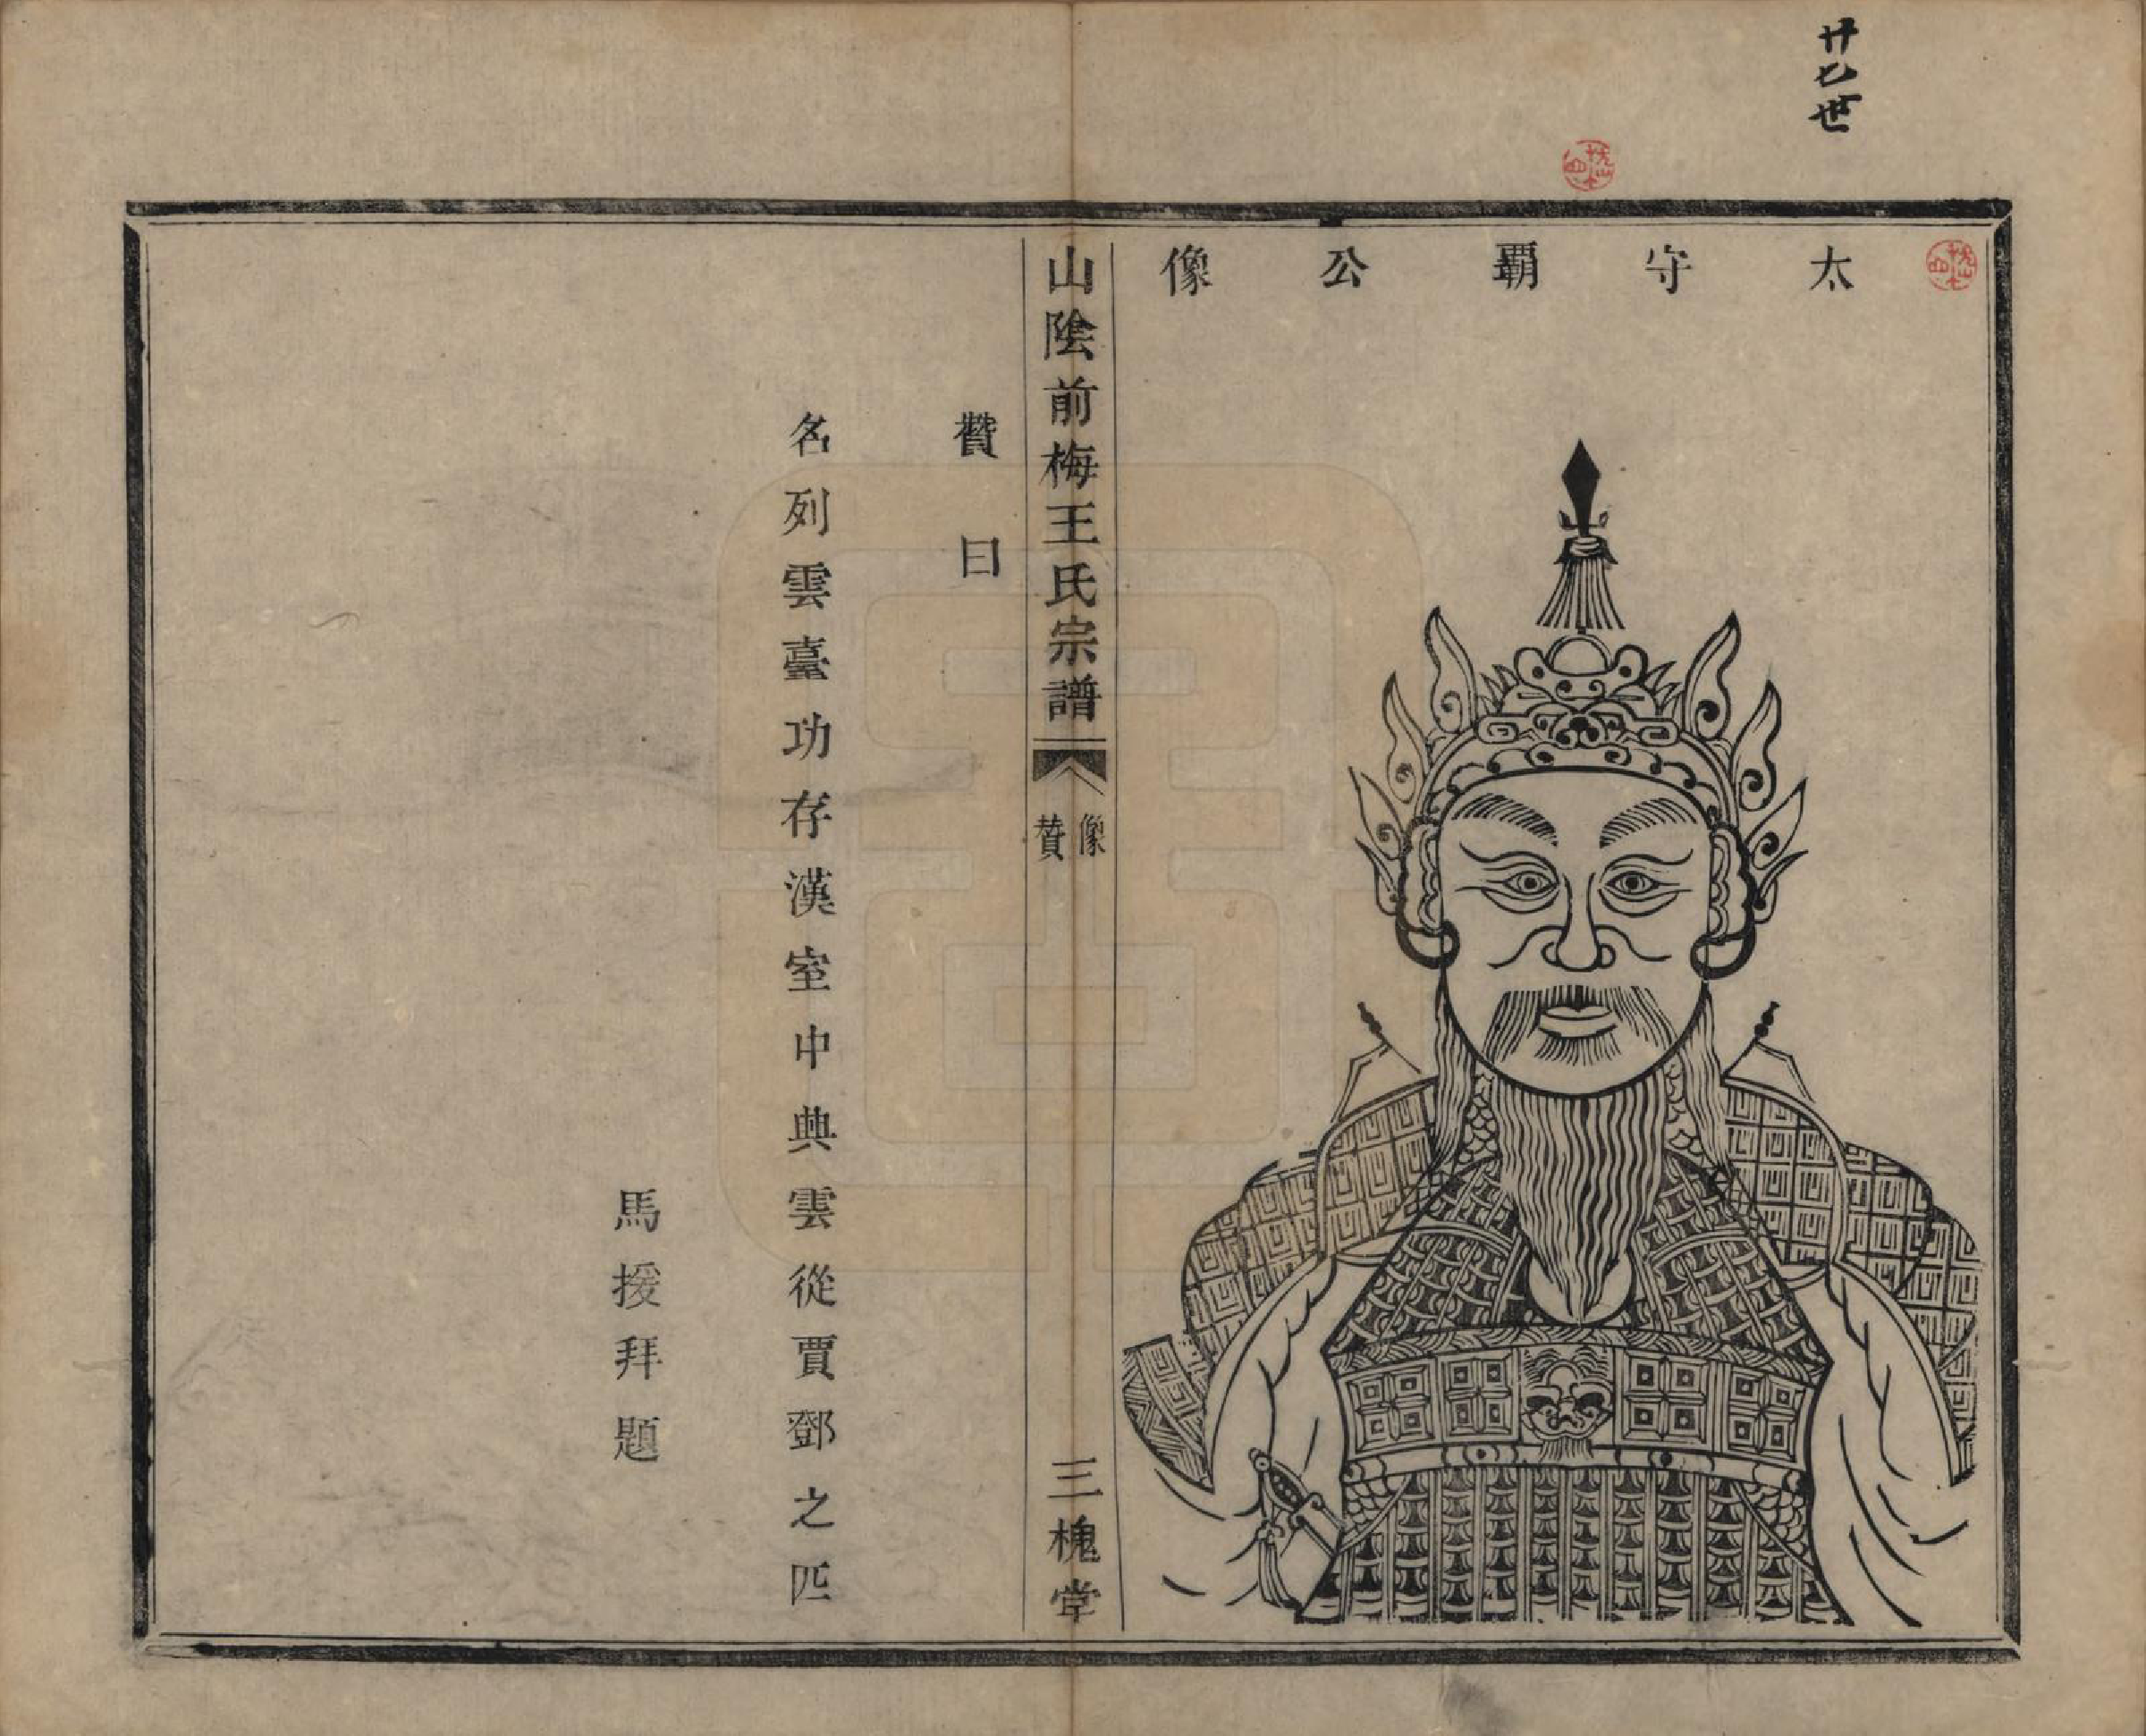 廿七世
太守霸公像
山陰前梅王氏宗譜
像贊
三槐堂
贊曰
名列雲臺功存漢室中興雲從賈鄧之匹
馬援拜題